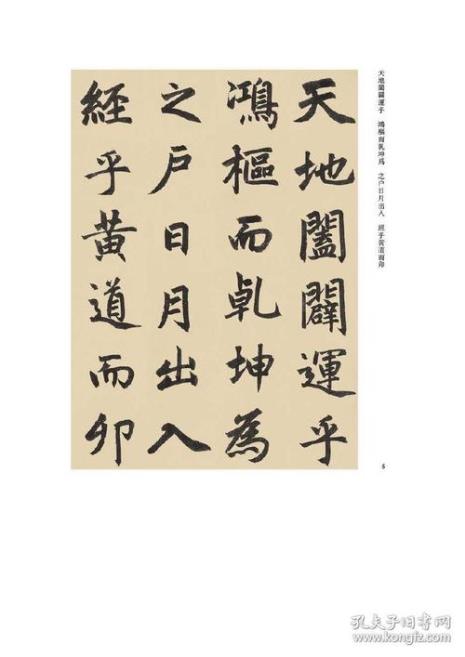 天地闔闢運乎
鴻樞而乹坤為
之户日月出入
經乎黄道而卯
天地闔闢運乎 鴻樞而乹坤為 之户日月出入 經乎黄道而卯
5
孔夫子旧书网